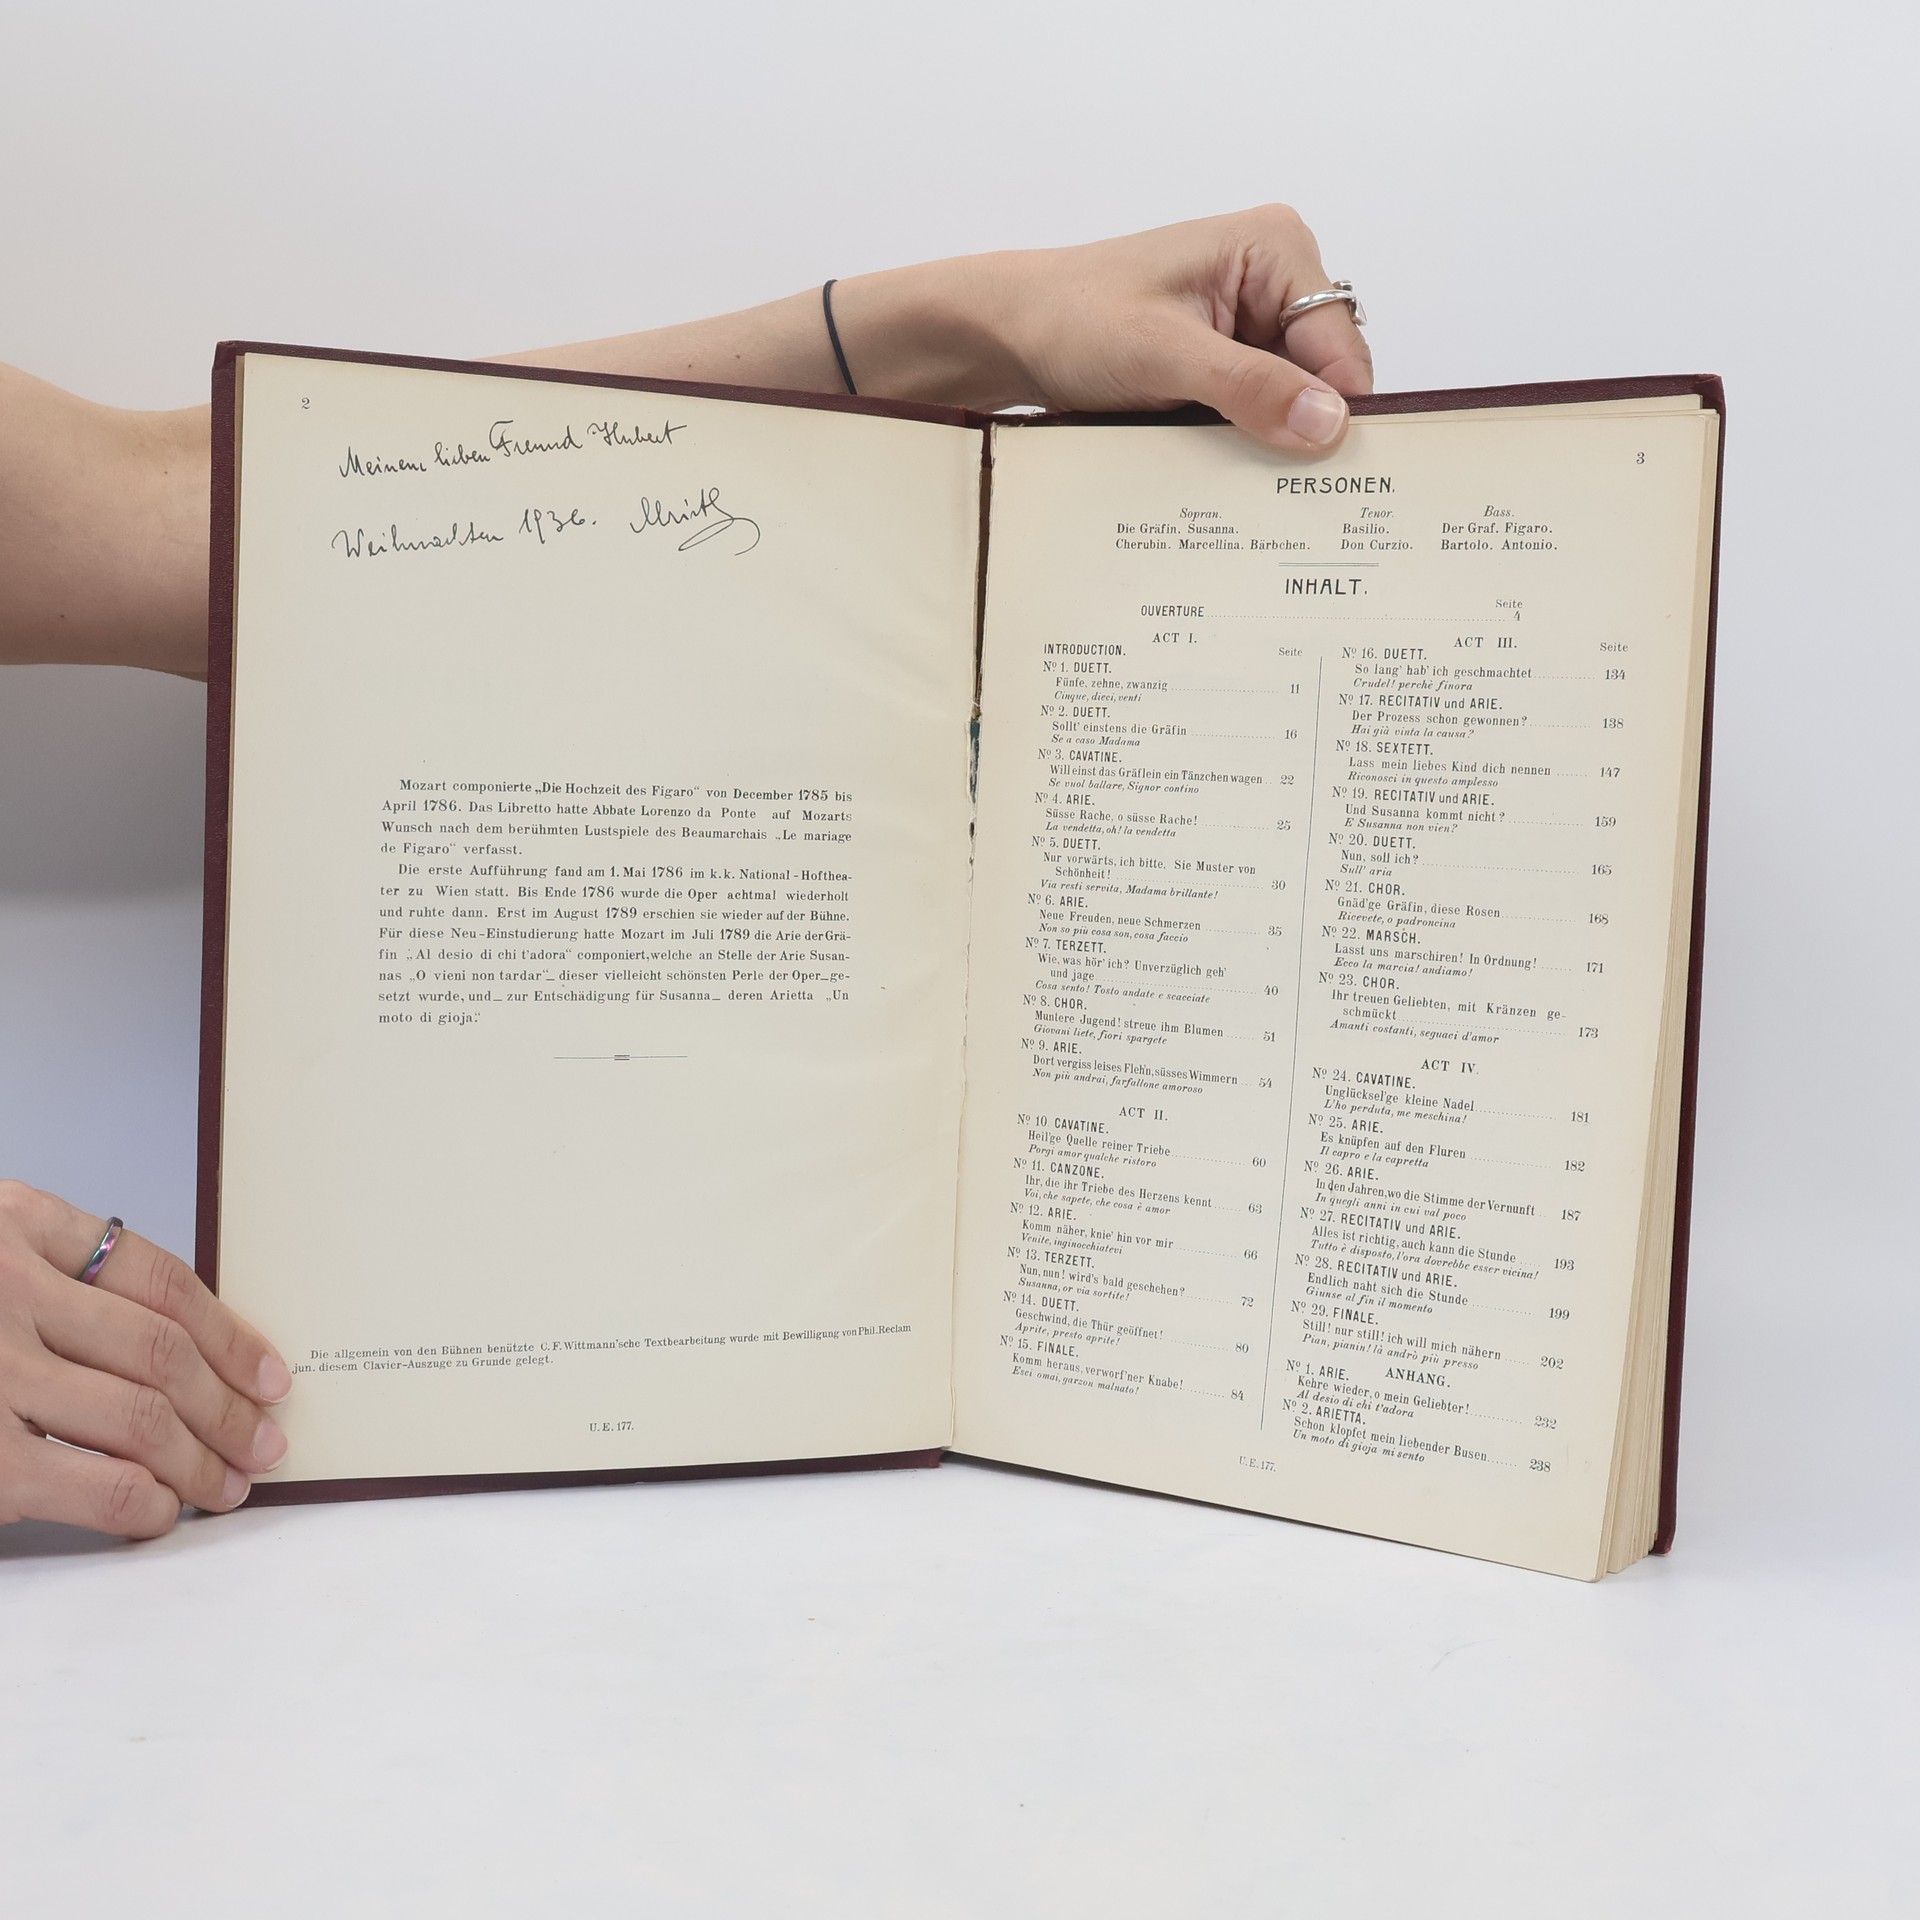 2
Meinem lieben Freund Hubert
Weihnachten 1936.
Mozart componierte „Die Hochzeit des Figaro“ von December 1785 bis
April 1786. Das Libretto hatte Abbate Lorenzo da Ponte auf Mozarts
Wunsch nach dem berühmten Lustspiele des Beaumarchais „Le mariage
de Figaro“ verfasst.
Die erste Aufführung fand am 1. Mai 1786 im k.k. National-Hofthea-
ter zu Wien statt. Bis Ende 1786 wurde die Oper achtmal wiederholt
und ruhte dann. Erst im August 1789 erschien sie wieder auf der Bühne.
Für diese Neu-Einstudierung hatte Mozart im Juli 1789 die Arie der Grä-
fin „Al desio di chi t'adora“ componiert, welche an Stelle der Arie Susan-
nas „O vieni non tardar“_ dieser vielleicht schönsten Perle der Oper_ge-
setzt wurde, und_ zur Entschädigung für Susanna_ deren Arietta „Un
moto di gioja.“
Die allgemein von den Bühnen benützte C.F. Wittmann'sche Textbearbeitung wurde mit Bewilligung von Phil. Reclam
jun. diesem Clavier-Auszuge zu Grunde gelegt.
U.E. 177.
3
PERSONEN.
Sopran. Tenor. Bass.
Die Gräfin. Susanna. Basilio. Der Graf. Figaro.
Cherubin. Marcellina. Bärbchen. Don Curzio. Bartolo. Antonio.
INHALT.
Seite
OUVERTURE 4
ACT I.
INTRODUCTION. Seite
Nº 1. DUETT.
Fünfe, zehne, zwanzig 11
Cinque, dieci, venti
Nº 2. DUETT.
Sollt' einstens die Gräfin 16
Se a caso Madama
Nº 3. CAVATINE.
Will einst das Gräflein ein Tänzchen wagen 22
Se vuol ballare, Signor contino
Nº 4. ARIE.
Süsse Rache, o süsse Rache! 25
La vendetta, oh! la vendetta
Nº 5. DUETT.
Nur vorwärts, ich bitte. Sie Muster von
Schönheit! 30
Via resti servita, Madama brillante!
Nº 6. ARIE.
Neue Freuden, neue Schmerzen 35
Non so più cosa son, cosa faccio
Nº 7. TERZETT.
Wie, was hör' ich? Unverzüglich geh'
und jage 40
Cosa sento! Tosto andate e scacciate
Nº 8. CHOR.
Muntere Jugend! streue ihm Blumen 51
Giovani liete, fiori spargete
Nº 9. ARIE.
Dort vergiss leises Fleh'n, süsses Wimmern 54
Non più andrai, farfallone amoroso
ACT II.
Nº 10. CAVATINE.
Heil'ge Quelle reiner Triebe 60
Porgi amor qualche ristoro
Nº 11. CANZONE.
Ihr, die ihr Triebe des Herzens kennt 63
Voi, che sapete, che cosa è amor
Nº 12. ARIE.
Komm näher, knie' hin vor mir 66
Venite, inginocchiatevi
Nº 13. TERZETT.
Nun, nun! wird's bald geschehen? 72
Susanna, or via sortite!
Nº 14. DUETT.
Geschwind, die Thür geöffnet! 80
Aprite, presto aprite!
Nº 15. FINALE.
Komm heraus, verworf'ner Knabe! 84
Esci omai, garzon malnato!
ACT III.
Seite
Nº 16. DUETT.
So lang' hab' ich geschmachtet 134
Crudel! perchè finora
Nº 17. RECITATIV und ARIE.
Der Prozess schon gewonnen? 138
Hai già vinta la causa?
Nº 18. SEXTETT.
Lass mein liebes Kind dich nennen 147
Riconosci in questo amplesso
Nº 19. RECITATIV und ARIE.
Und Susanna kommt nicht? 159
E Susanna non vien?
Nº 20. DUETT.
Nun, soll ich? 165
Sull' aria
Nº 21. CHOR.
Gnäd'ge Gräfin, diese Rosen 168
Ricevete, o padroncina
Nº 22. MARSCH.
Lasst uns marschiren! In Ordnung! 171
Ecco la marcia! andiamo!
Nº 23. CHOR.
Ihr treuen Geliebten, mit Kränzen ge-
schmückt 173
Amanti costanti, seguaci d'amor
ACT IV.
Nº 24. CAVATINE.
Unglücksel'ge kleine Nadel 181
L'ho perduta, me meschina!
Nº 25. ARIE.
Es knüpfen auf den Fluren 182
Il capro e la capretta
Nº 26. ARIE.
In den Jahren, wo die Stimme der Vernunft 187
In quegli anni in cui val poco
Nº 27. RECITATIV und ARIE.
Alles ist richtig, auch kann die Stunde 193
Tutto è disposto, l'ora dovrebbe esser vicina!
Nº 28. RECITATIV und ARIE.
Endlich naht sich die Stunde 199
Giunse al fin il momento
Nº 29. FINALE.
Still! nur still! ich will mich nähern 202
Pian, pianin! là andrò più presso
ANHANG.
Nº 1. ARIE.
Kehre wieder, o mein Geliebter! 232
Al desio di chi t'adora
Nº 2. ARIETTA.
Schon klopfet mein liebender Busen 238
Un moto di gioja mi sento
U.E. 177.